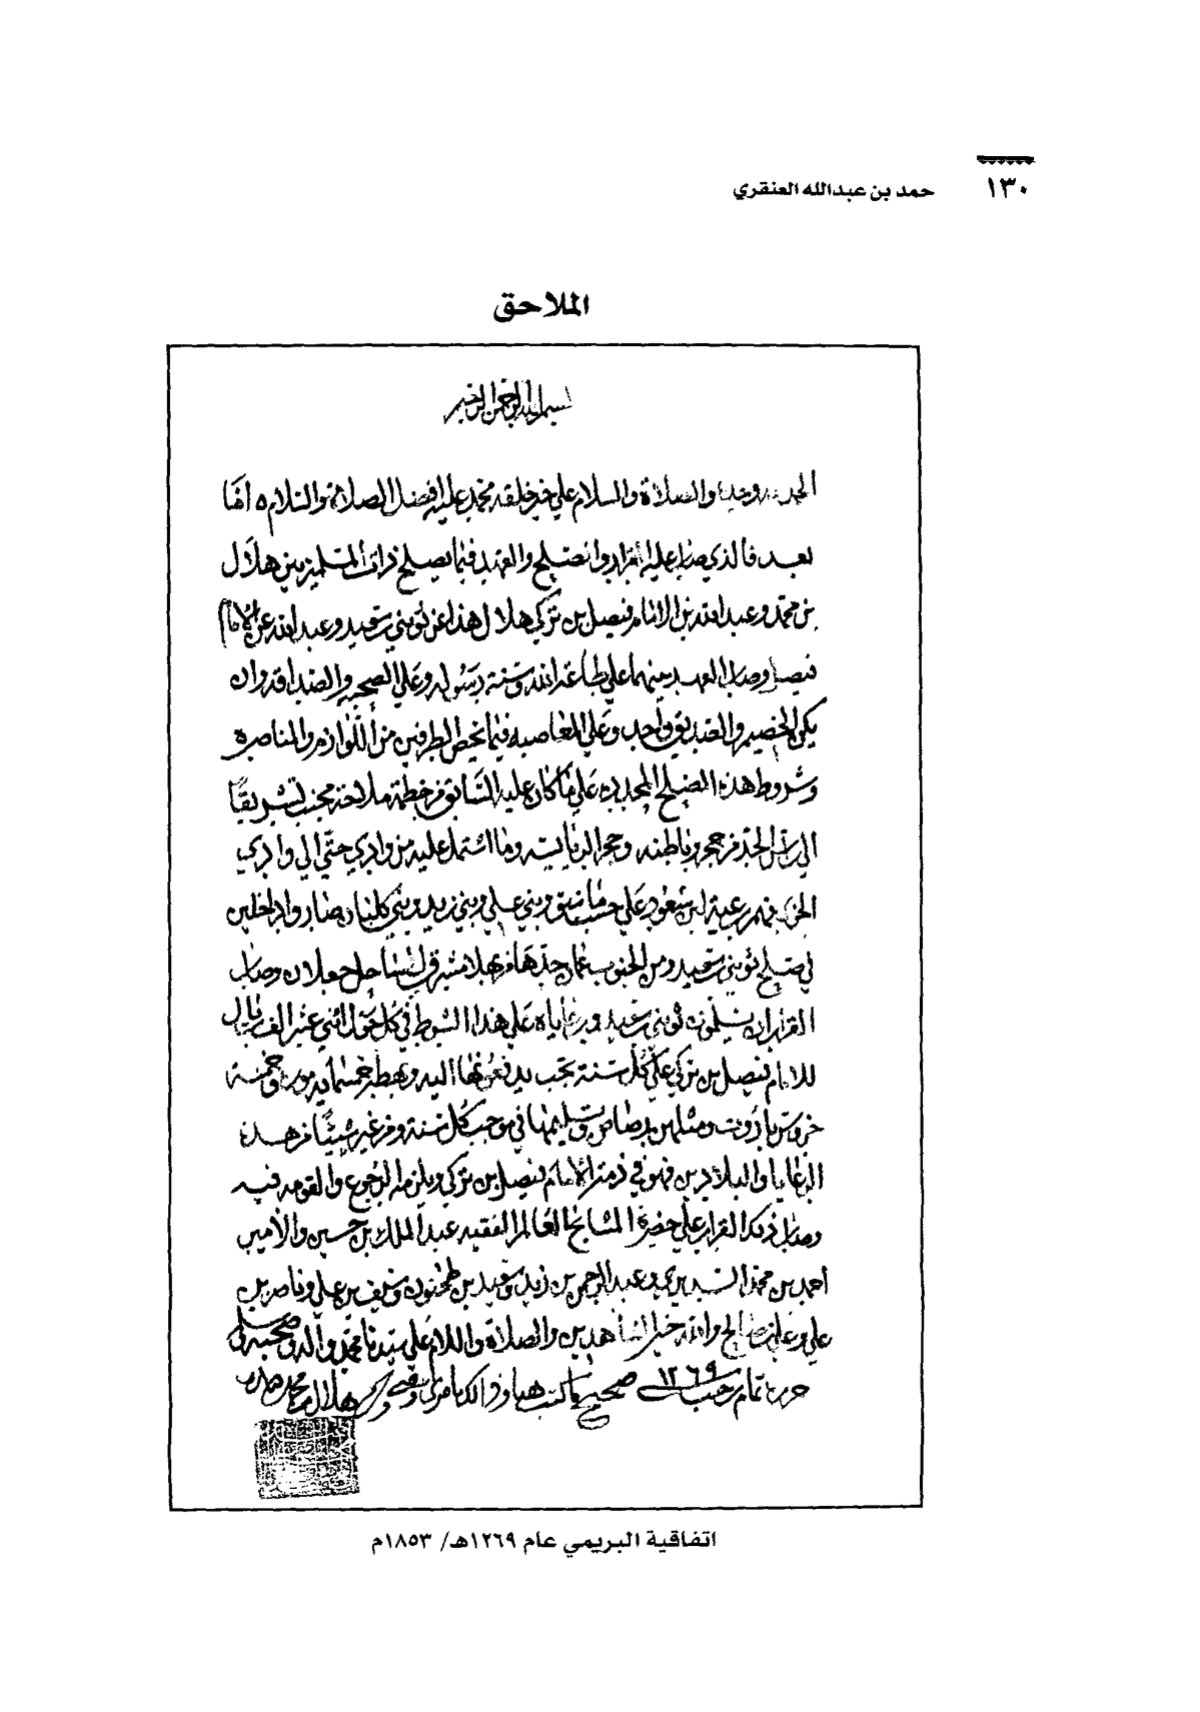 ١٣٠
حمد بن عبدالله العنقري
الملاحق
بسم الله الرحمن الرحيم
الحمد لله وحده والصلاة والسلام على خير خلقه محمد عليه افضل الصلاة والسلام اما
بعد فالذي صار عليه القرار والصلح والعهد فيما يصلح ذات المسلمين بين هلال
بن محمد وعبد الله بن الامام فيصل بن تركي هلال هذا عن ثويني بن سعيد وعبد الله عن الامام
فيصل وصار العهد بينهما على طاعة الله وسنة رسوله وعلى الصحبه والصداقه وان
يكن الخصيم والصديق واحد وعلى المعاصبه فيما يخص الطرفين من اللوازم والمناصره
وشروط هذه الصلح المجدده على ما كان عليه السابق من خطمة ملاحة
الى الحد من حجر وباطنه وما اشتمل عليه من وادي حتى الى وادي
رعية لبن سعود على حسب ما سبق وبني علي وبني زيد وبني كلبان صاروا داخلين
في صلح ثويني بن سعيد ومن الجنوب عمان حدها ساحل جعلان وصار
القرار ان يسلمون ثويني بن سعيد ورعاياه على هذا الشروط في كل حول اثني عشر الف ريال
للامام فيصل بن تركي على كل سنة يدفعونها اليه وخمسة
باروت ومثلهن رصاص وتسليمها في موجب كل سنة ومن غير شيئا من هذه
الرعايا والبلادين فهو في ذمة الامام فيصل بن تركي ويلزمه الرجوع والقومه فيه
وصار ذلك القرار على حضرة المشايخ العالم الفقيه عبد الملك بن حسين والامير
احمد بن محمد السديري وعبد الرحمن بن سعيد بن طحنون بن علي وناصر بن
علي وعلي بن صالح والله خير الشاهدين والصلاة والسلام على سيدنا محمد واله وصحبه وسلم
حرر تمام رجب سنة ١٢٦٩ صحيح ما كتب هلال بن محمد بيده
اتفاقية البريمي عام ١٢٦٩هـ/ ١٨٥٣م